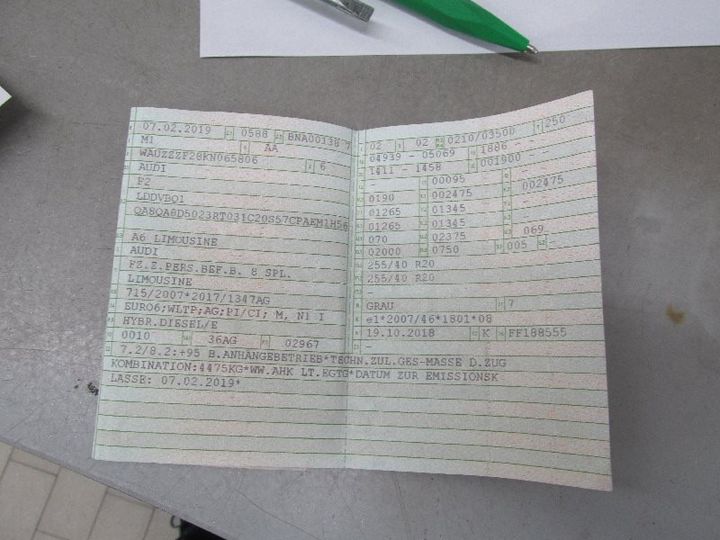 07.02.2019 0588 BNA00138 7
M1 AA
WAUZZZF28KN065806 6
AUDI
F2
LDDVBQ1
QA8QA8D5023RT031C20S57CPAEM1H56
A6 LIMOUSINE
AUDI
FZ.Z.PERS.BEF.B. 8 SPL.
LIMOUSINE
715/2007*2017/1347AG
EURO6;WLTP;AG;PI/CI; M, N1 I
HYBR.DIESEL/E
0010 36AG 02967
02 02 0210/03500 250
04939 - 05069 1886 - -
1411 - 1458 001900 -
- 00095 -
0190 002475 002475
01265 01345 -
01265 01345 -
070 02375 069
02000 0750 005
255/40 R20
255/40 R20
-
GRAU 7
e1*2007/46*1801*08
19.10.2018 K FF188555
-
7.2/8.2:+95 B.ANHÄNGEBETRIEB*TECHN.ZUL.GES-MASSE D.ZUG
KOMBINATION:4475KG*WW.AHK LT.EGTG*DATUM ZUR EMISSIONSK
LASSE: 07.02.2019*